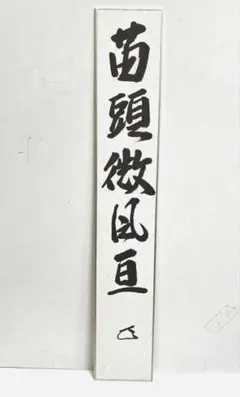 苗頭微風亘